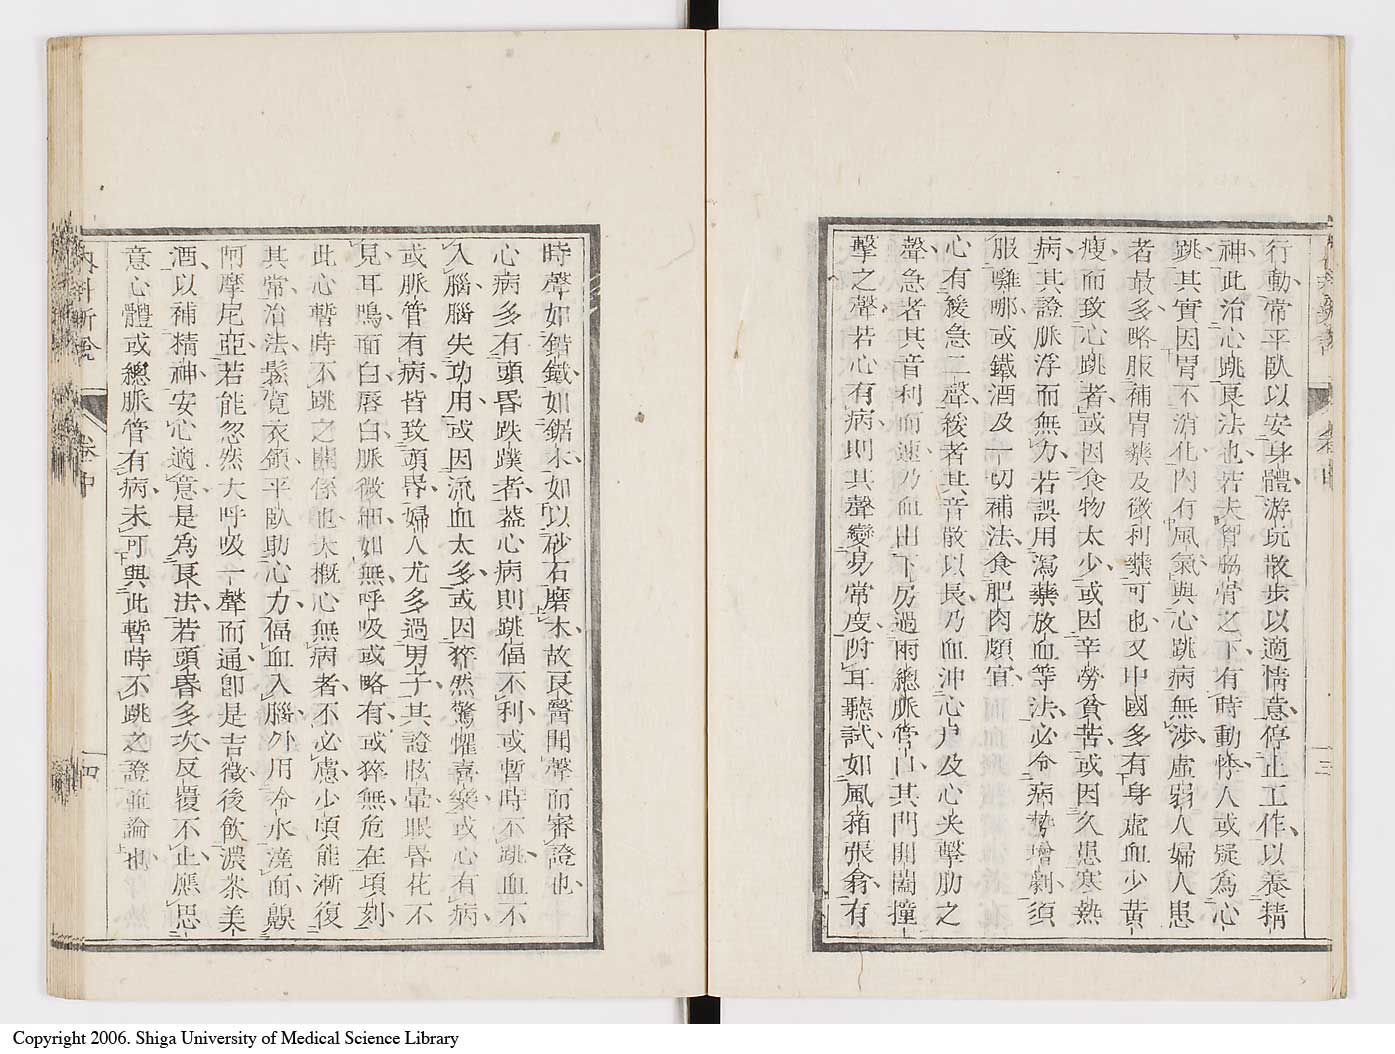 行動常平臥以安身體游玩散步以適情意停止工作以養精
神此治心跳良法也若夫胷脇骨之下有時動悸人或疑為心
跳其實因胃不消化內有風氣與心跳病無涉虛弱人婦人患
者最多略服補胃藥及微利藥可也又中國多有身虛血少黃
瘦而致心跳者或因食物太少或因辛勞貧苦或因久患寒熱
病其證脈浮而無力若誤用瀉藥放血等法必令病勢增劇須
服囄哪或鐵酒及一切補法食肥肉頗宜
心有緩急二聲緩者其音散以長乃血沖心戶及心尖擊肋之
聲急者其音利而速乃血由下房過兩總脈管口其門開闔撞
擊之聲若心有病則其聲變易常度附耳聽試如風箱張翕有
時聲如銼鐵如鋸木如以砂石磨木故良醫聞聲而審證也
心病多有頭昏跌蹼者葢心病則跳偪不利或暫時不跳血不
入腦腦失功用或因流血太多或因猝然驚懼喜樂或心有病
或脈管有病皆致頭昏婦人尤多過男子其證眩暈眼昏花不
見耳鳴面白唇白脈微細如無呼吸或略有或猝無危在頃刻
此心暫時不跳之關係也大概心無病者不必慮少頃能漸復
其常治法鬆寬衣領平臥助心力偪血入腦外用冷水澆面䶎
阿摩尼亞若能忽然大呼吸一聲而通卽是吉徵後飲濃茶美
酒以補精神安心適意是為良法若頭昏多次反覆不止應思
意心體或總脈管有病未可與此暫時不跳之證並論也
內科新說
卷中
十三
十四